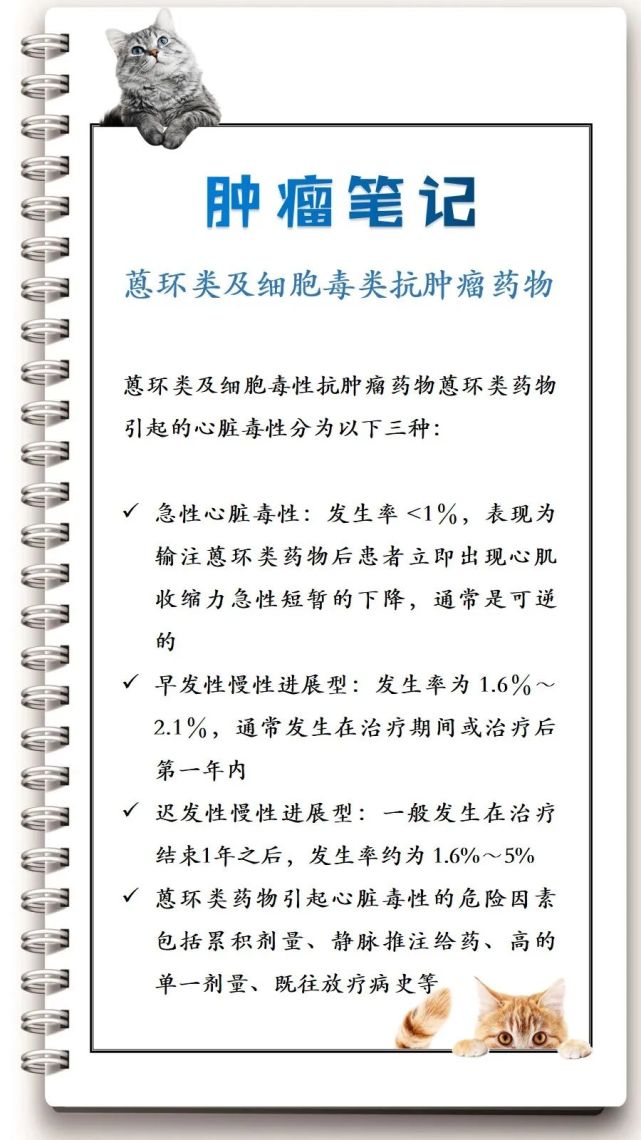 肿瘤笔记
蒽环类及细胞毒类抗肿瘤药物
蒽环类及细胞毒性抗肿瘤药物蒽环类药物
引起的心脏毒性分为以下三种：
✓ 急性心脏毒性：发生率 <1％，表现为
输注蒽环类药物后患者立即出现心肌
收缩力急性短暂的下降，通常是可逆
的
✓ 早发性慢性进展型：发生率为 1.6％～
2.1％，通常发生在治疗期间或治疗后
第一年内
✓ 迟发性慢性进展型：一般发生在治疗
结束1年之后，发生率约为 1.6%～5%
✓ 蒽环类药物引起心脏毒性的危险因素
包括累积剂量、静脉推注给药、高的
单一剂量、既往放疗病史等